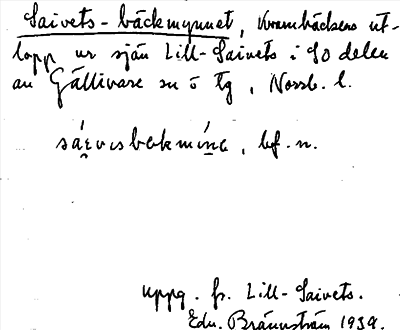 Saivets-bäckmynnet, Krambäckens ut-
lopp ur sjön Lill-Saivets i SO delen
av Gällivare sn o tg, Norrb. l.
sáɛvɩsbɛkmýnɛ, bf. n.
uppg. fr. Lill-Saivets.
Edv. Brännström 1939.